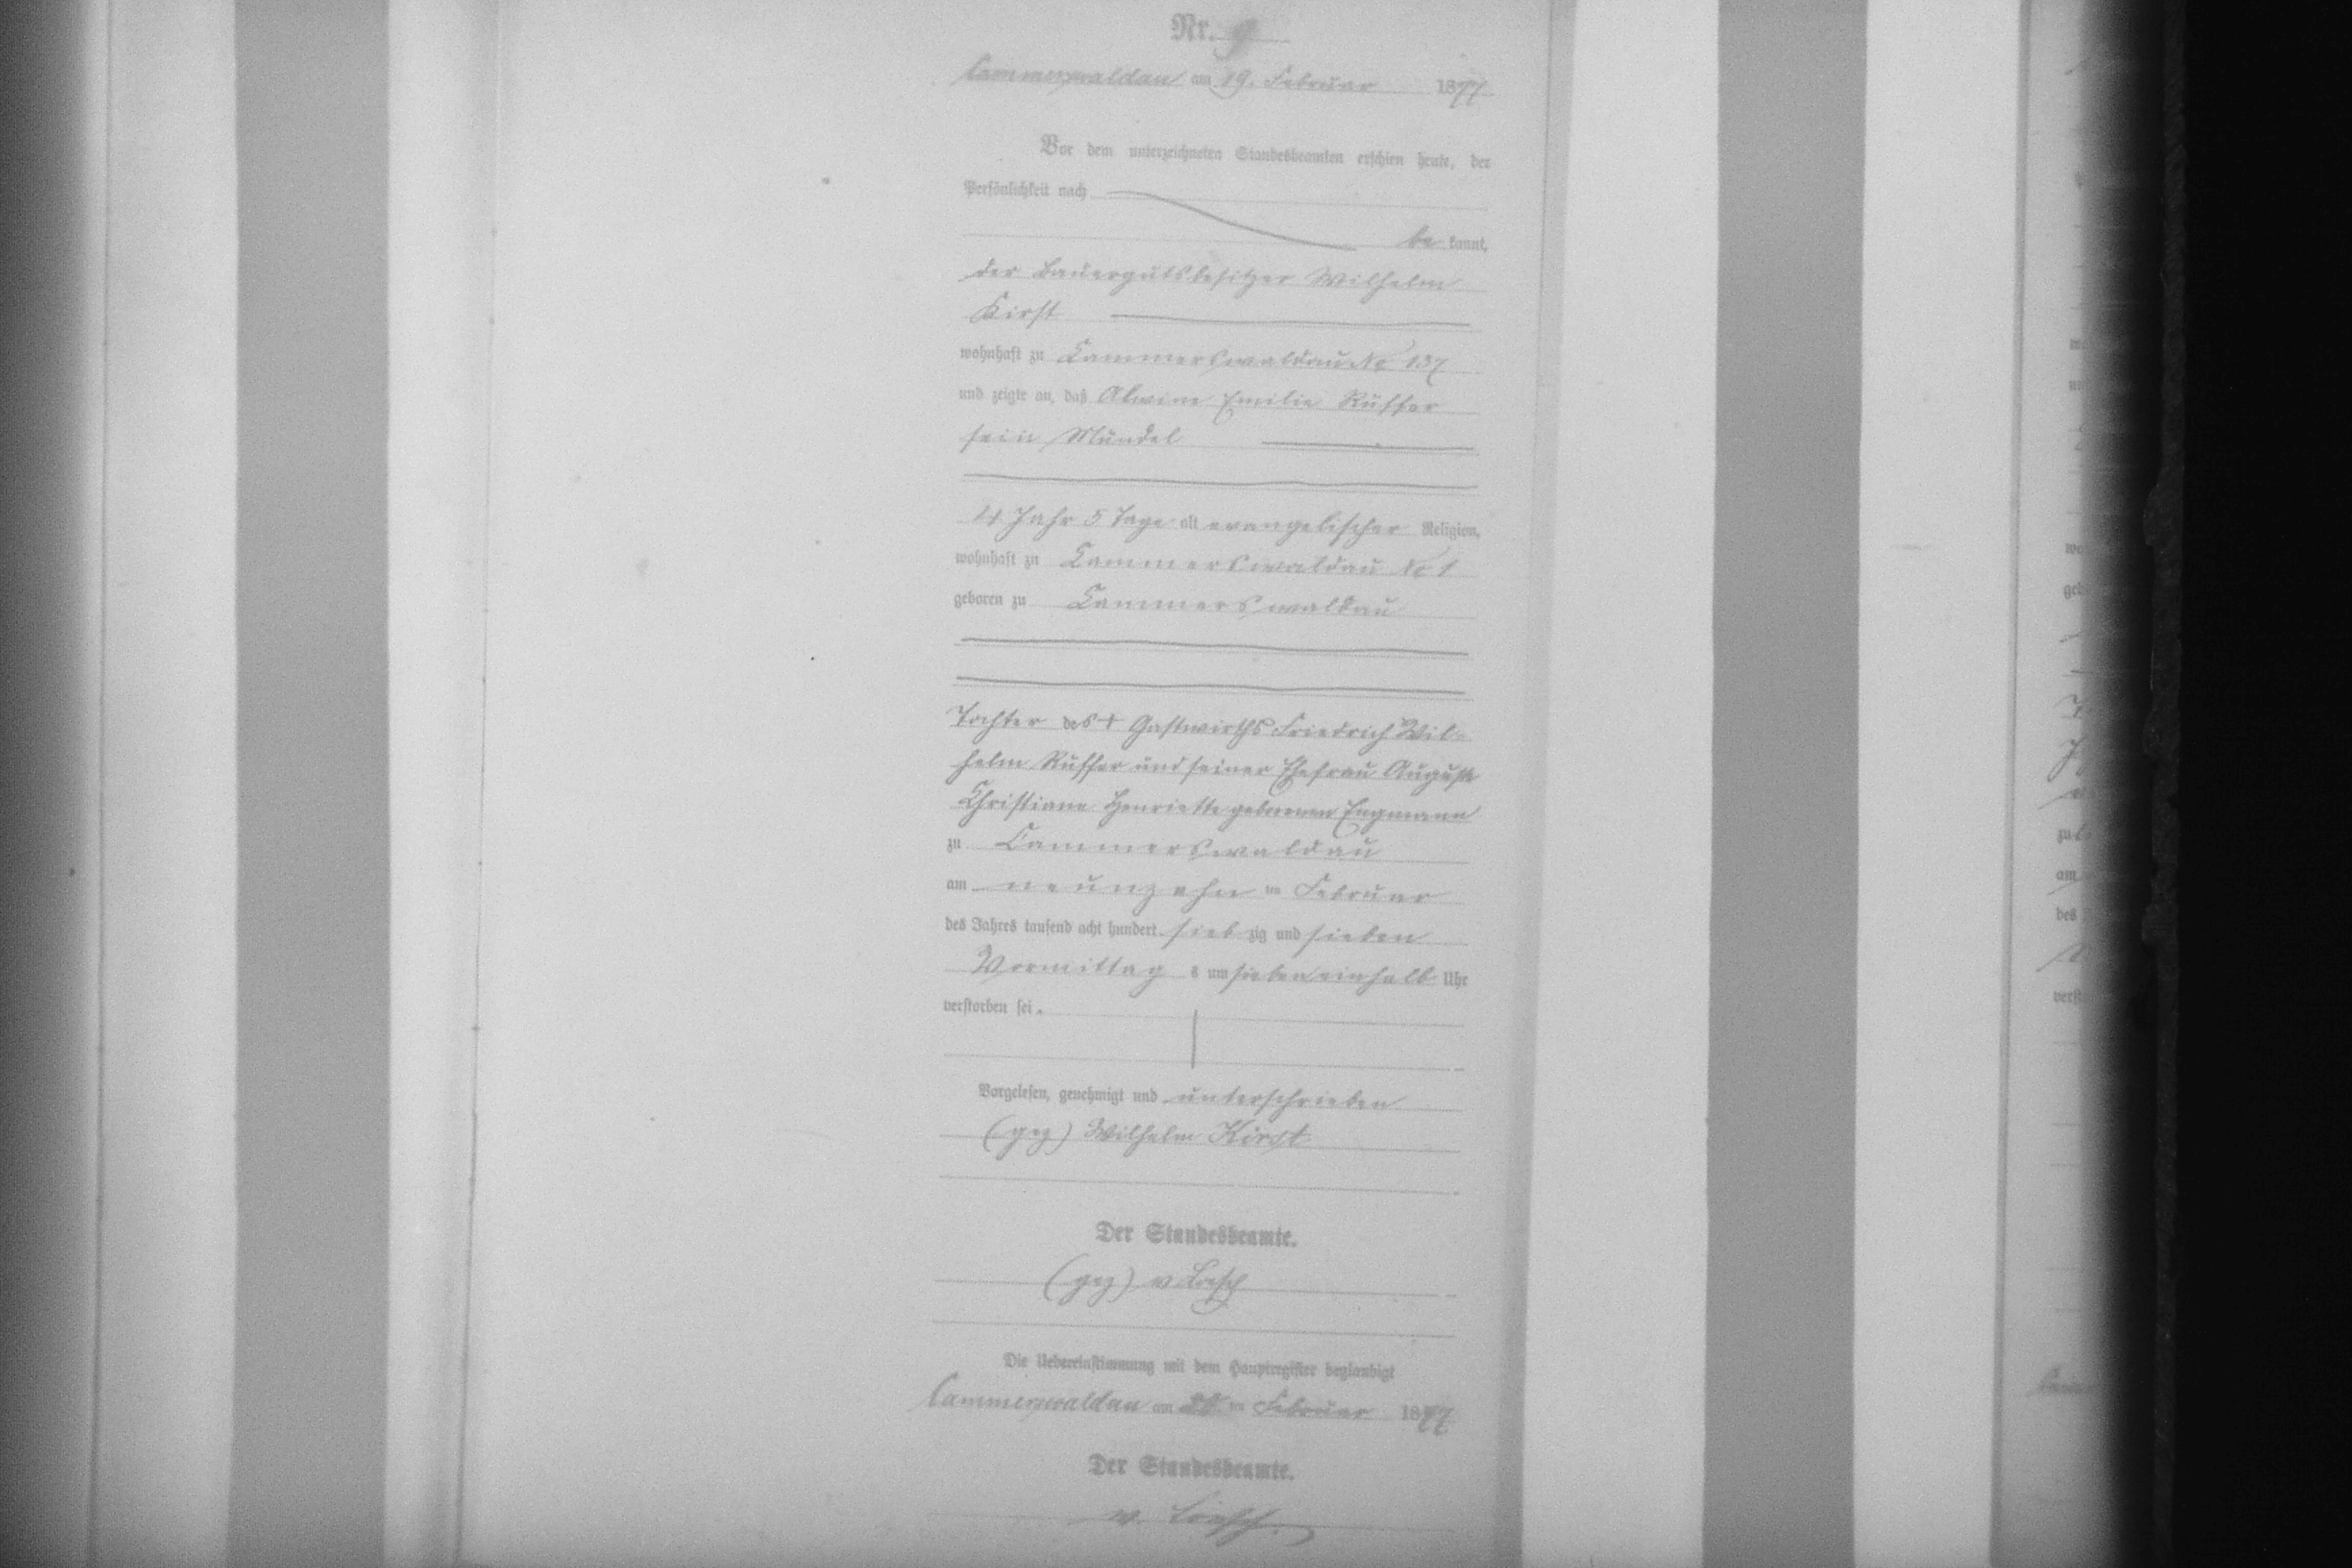 Nr. 9
Cammerswaldau am 19. Februar 1877
Vor dem unterzeichneten Standesbeamten erschien heute, der
Persönlichkeit nach
be kannt,
der Bauergutsbesitzer Wilhelm
Kirst
wohnhaft zu Cammerswaldau No 137
und zeigte an, daß Alwine Emilie Rüffer
sein Mündel
4 Jahr 5 Tage alt evangelischer Religion,
wohnhaft zu Cammerswaldau No 1
geboren zu Cammerswaldau
Tochter des + Gastwirths Friedrich Wil-
helm Rüffer und seiner Ehefrau Auguste
Christiane Henriette geborenen Engmann
zu Cammerswaldau
am neunzehn ten Februar
des Jahres tausend acht hundert sieb zig und sieben
Vormittag s um sieben einhalb Uhr
verstorben sei.
Vorgelesen, genehmigt und unterschrieben
(gez) Wilhelm Kirst
Der Standesbeamte.
(gez) v Loesch
Die Uebereinstimmung mit dem Hauptregister beglaubigt
Cammerswaldau am ten Februar 1877
Der Standesbeamte.
v. Loesch.